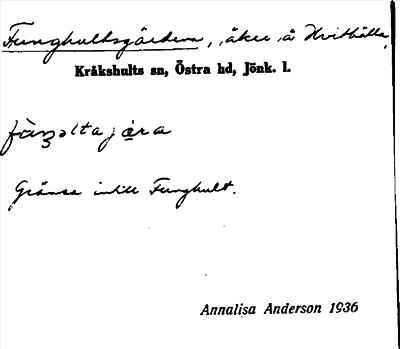 Funghultsgärdena, åker å Hvithälla,
Kråkshults sn, Östra hd, Jönk. l.
Gränsa intill Funghult.
Annalisa Anderson 1936